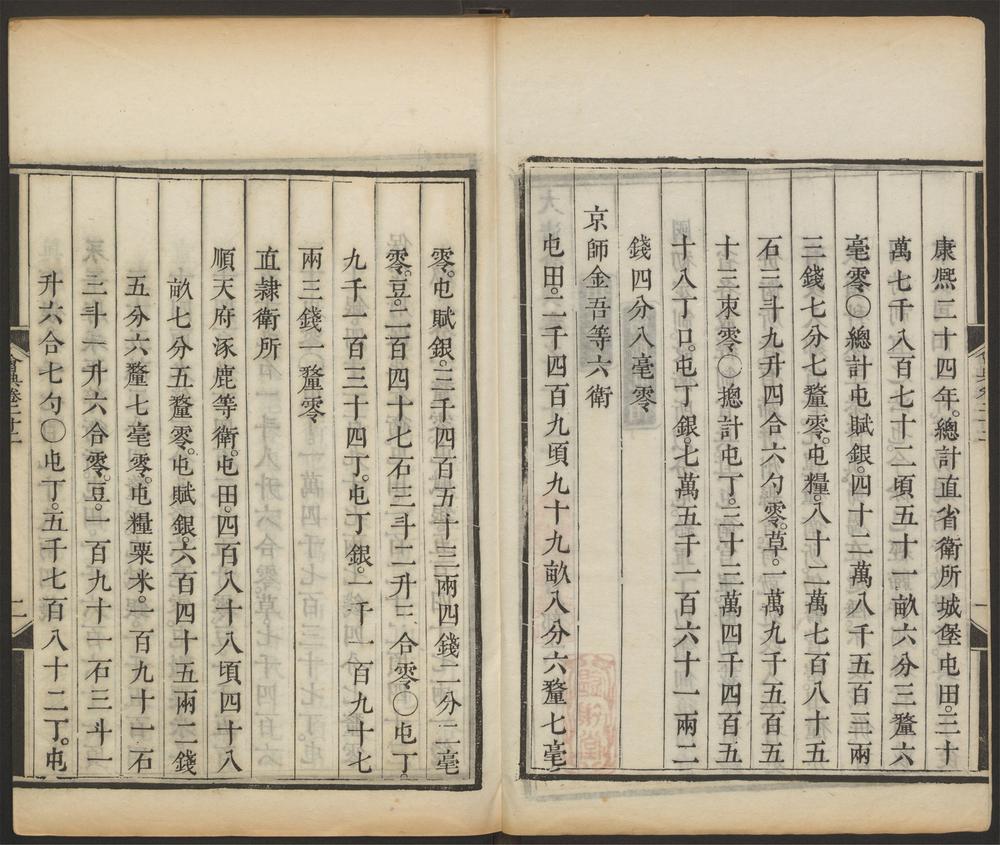 康熙二十四年。總計直省衛所城堡屯田。三十
萬七千八百七十二頃五十一畝六分三釐六
毫零〇總計屯賦銀。四十二萬八千五百三兩
三錢七分七釐零。屯糧。八十二萬七百八十五
石三斗九升四合六勺零。草。一萬九千五百五
十三。束零〇摠計屯丁。三十二萬四千四百五
十八丁口。屯丁銀。七萬五千一百六十一兩二
錢四分八毫零
京師金吾等六衛
屯田。二千四百九頃九十九畝八分六釐七毫
零。屯賦銀。三千四百五十三兩四錢二分二毫
零。豆。二百四十七石三斗二升三合零〇屯丁。
九千一百三十四丁。屯丁銀。一千一百九十七
兩三錢一釐零
直隸衛所
順天府涿鹿等衛。屯田。四百八十八頃四十八
畝七分五釐零。屯賦銀。六百四十五兩二錢
五分六釐七毫零。屯糧粟米。一百九十一石
三斗一升六合零。豆。一百九十一石三斗一
升六合七勺〇屯丁。五千七百八十二丁。屯